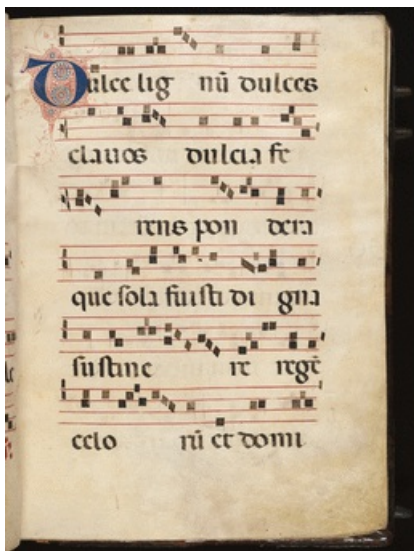 Dulce lig nū dulces
clauos dulcia fe
rens pon dera
que sola fuisti di gna
sustine re regē
celo rū et domi